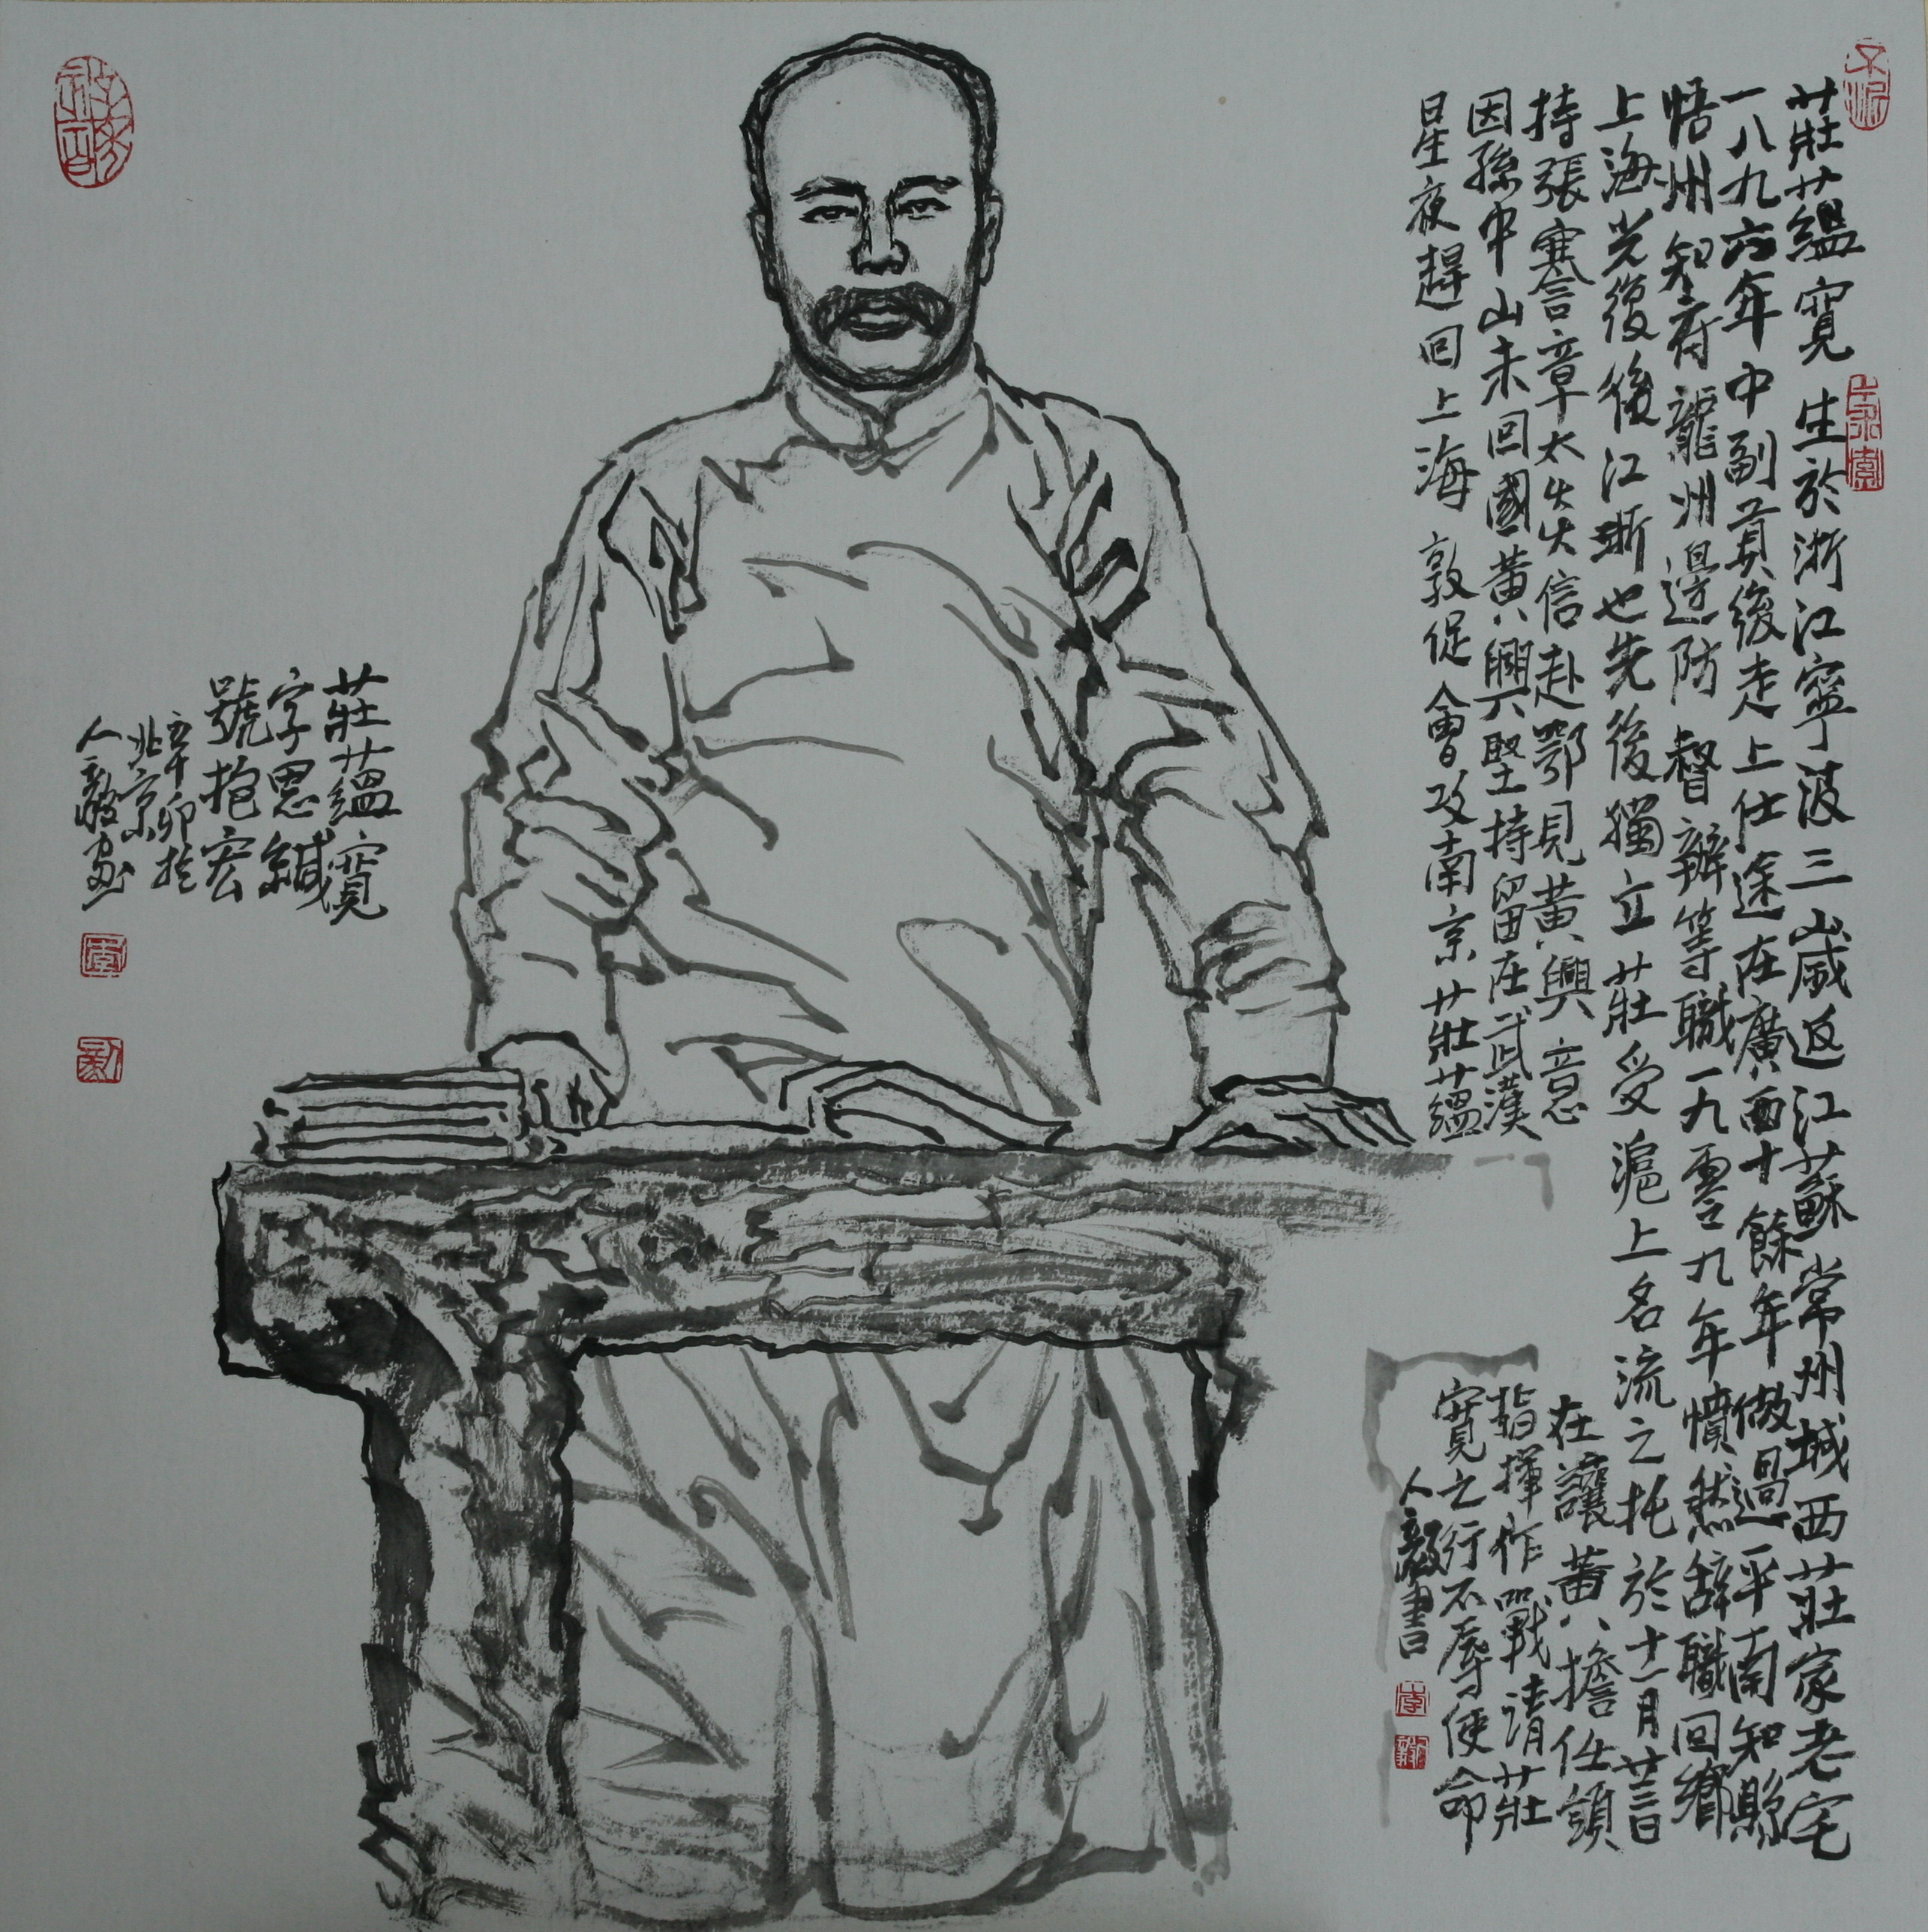 莊蘊寬生於浙江寧波三歲返江蘇常州城西莊家老宅
一八九六年中副貢後走上仕途在廣西十餘年做過平南知縣
梧州知府龍州邊防督辦等職一九零九年憤然辭職回鄉
上海光復後江浙也先後獨立莊受滬上名流之托於十一月廿三日
持張謇章太炎信赴鄂見黃興意
在讓黃擔任領
因孫中山未回國黃興堅持留在武漢
指揮作戰請莊
星夜趕回上海敦促會攻南京莊蘊
寬之行不辱使命
人毅書
莊蘊寬
字思緘
號抱宏
辛卯於
北京
人毅畫